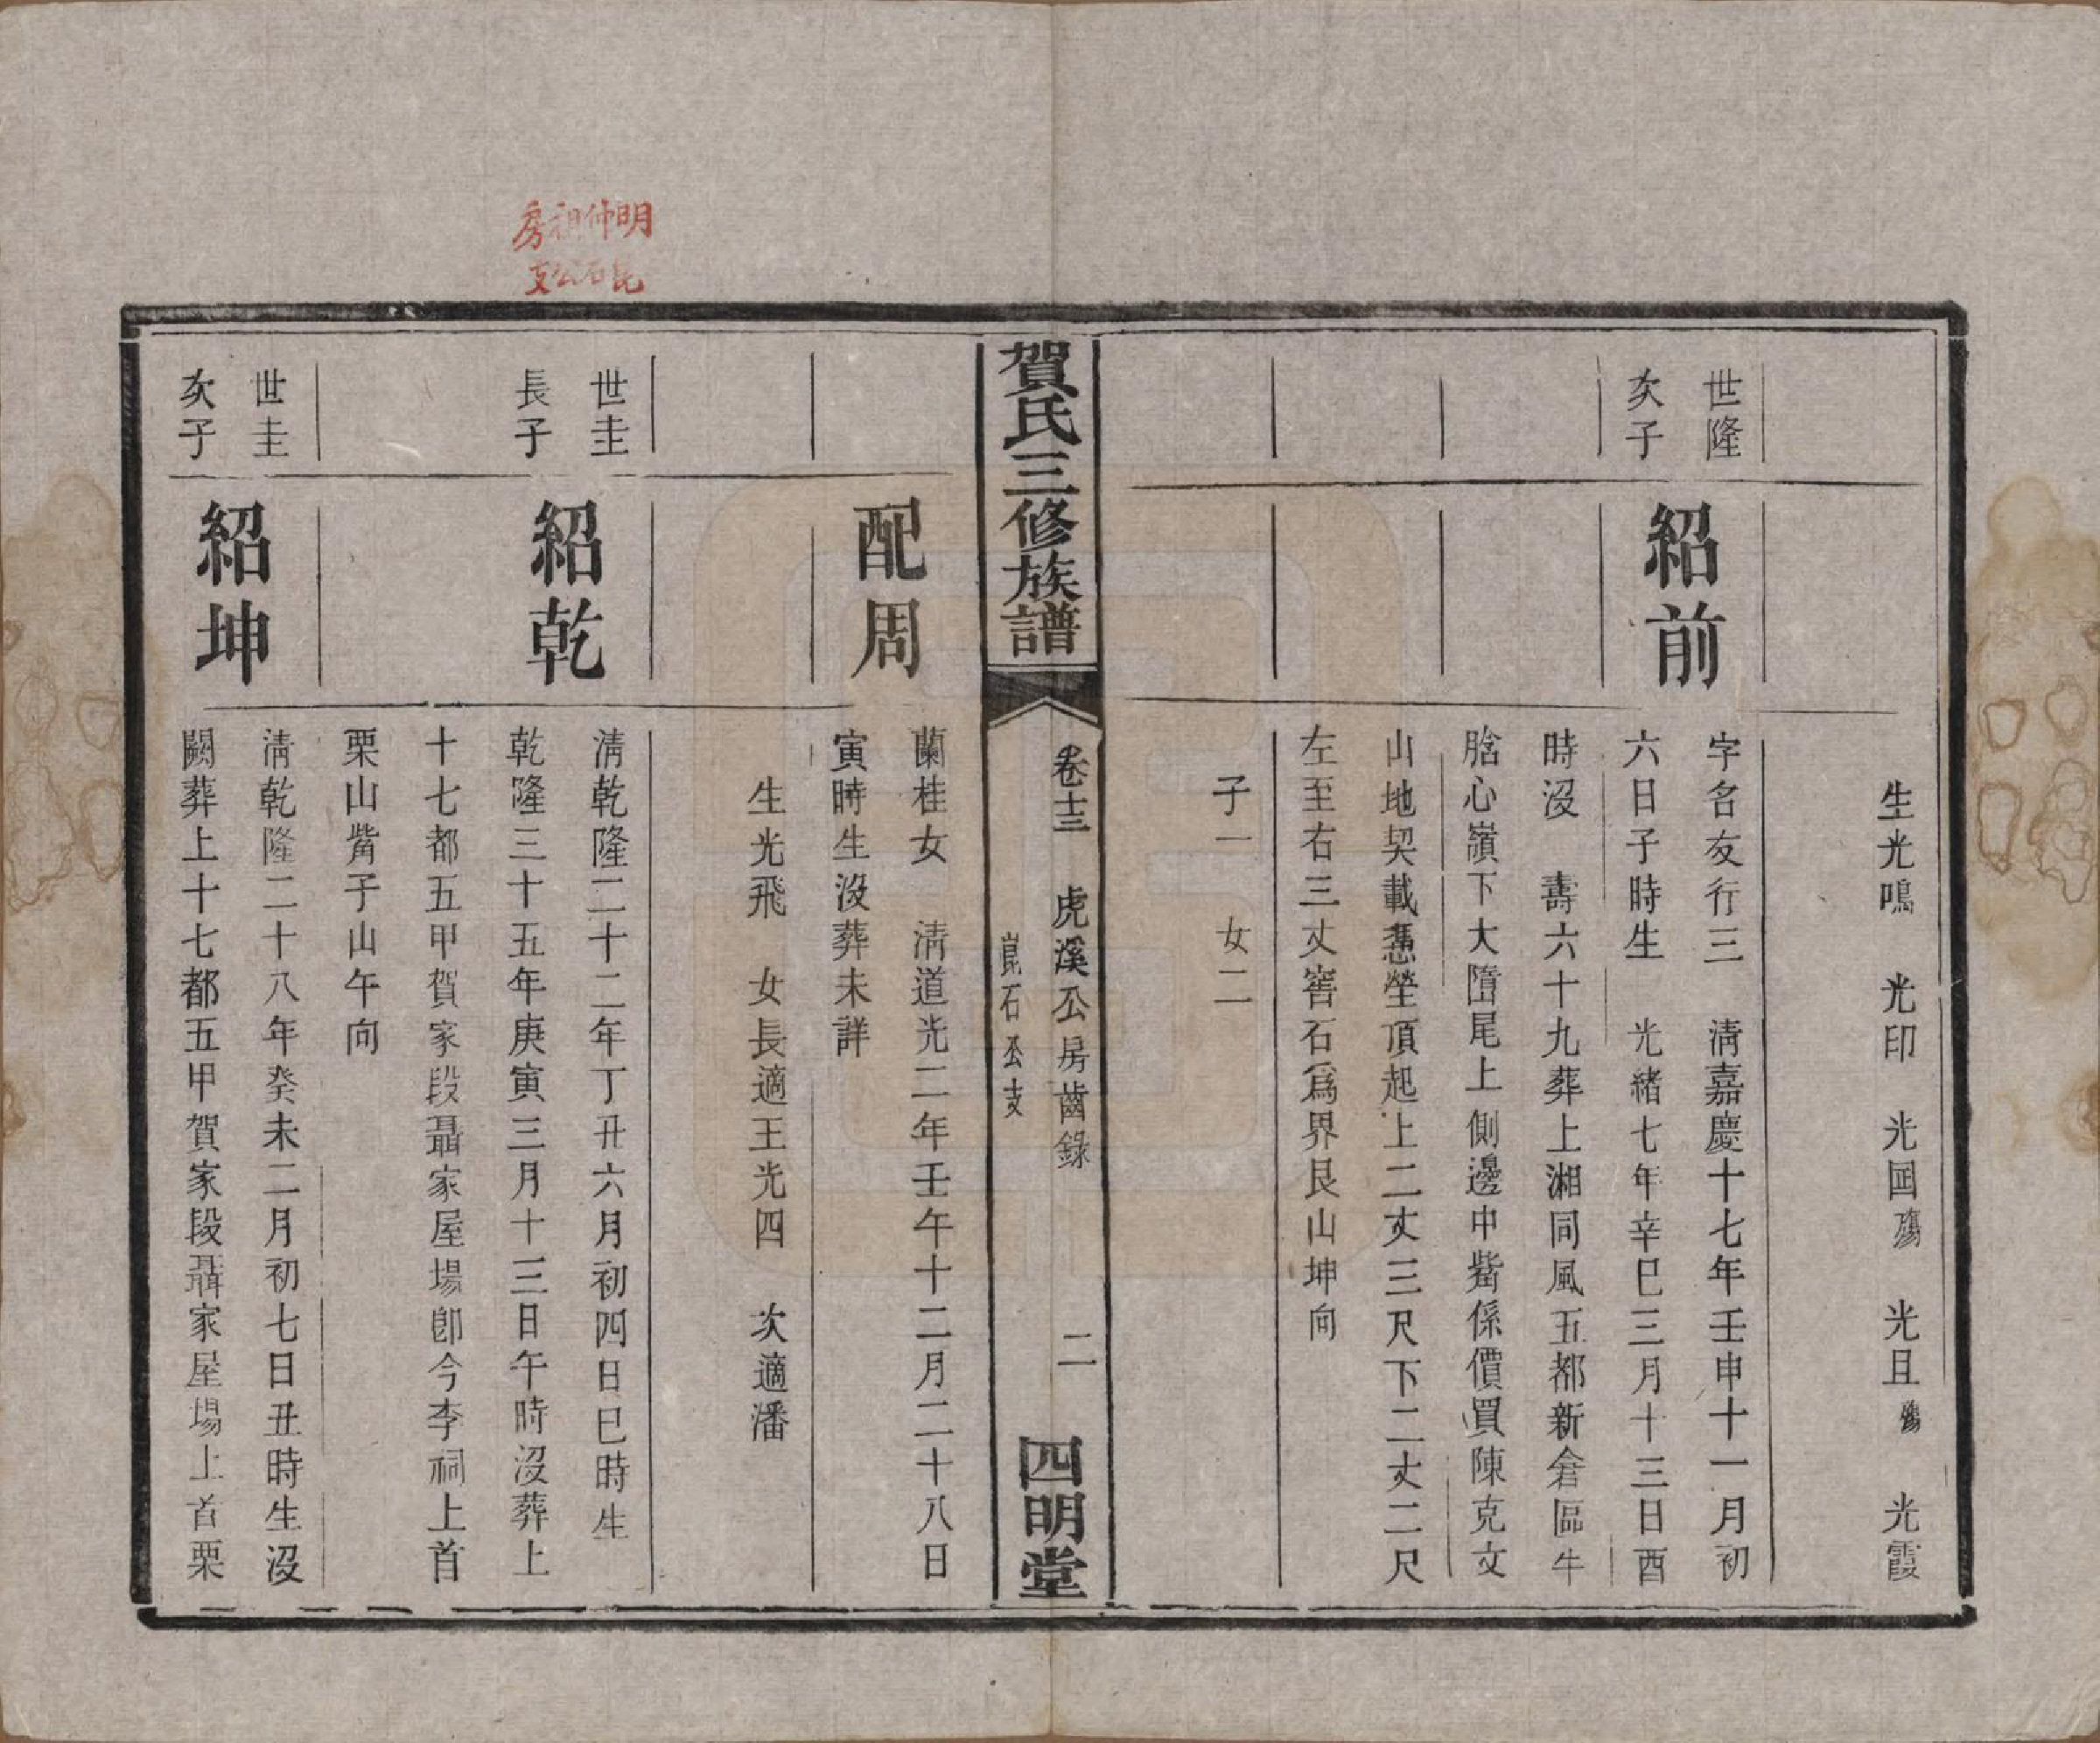 生光鳴　光印　光国殤　光且殤　光霞
世隆
次子
紹前
字名友行三　清嘉慶十七年壬申十一月初
六日子時生　光緒七年辛巳三月十三日酉
時沒　壽六十九葬上湘同風五都新倉區牛
胎心嶺下大墮尾上側邊中觜係價買陳克文
山地契載憑塋頂起上二丈三尺下二丈二尺
左至右三丈窖石爲界艮山坤向
子一　女二
賀氏三修族譜
卷十三　虎溪公房齒錄
崑石公支
二
四明堂
配周
蘭桂女　清道光二年壬午十二月二十八日
寅時生沒葬未詳
生光飛　女長適王光四　次適潘
明仲祖房
昆石公支
世圭
長子
紹乾
清乾隆二十二年丁丑六月初四日巳時生
乾隆三十五年庚寅三月十三日午時沒葬上
十七都五甲賀家段聶家屋場卽今李祠上首
栗山觜子山午向
世圭
次子
紹坤
清乾隆二十八年癸未二月初七日丑時生沒
闕葬上十七都五甲賀家段聶家屋場上首栗